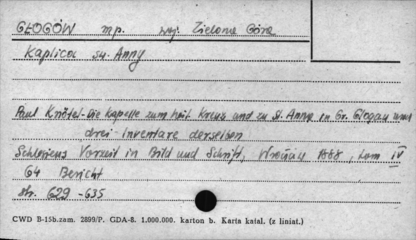 GŁOGÓW mp. woj. Zielona Góra
Kaplica św. Anny
Paul Knötel - Die Kapelle zum heil. Kreuz und zu St. Anna in Gr. Glogau und
drei Inventare derselben
Schlesiens Vorzeit in Bild und Schrift, Wrocław 1888, tom IV
64 Bericht
str. 629-635
CWD B-15b.zam. 2899/P. GDA-8. 1.000.000. karton b. Karta katal. (z liniat.)